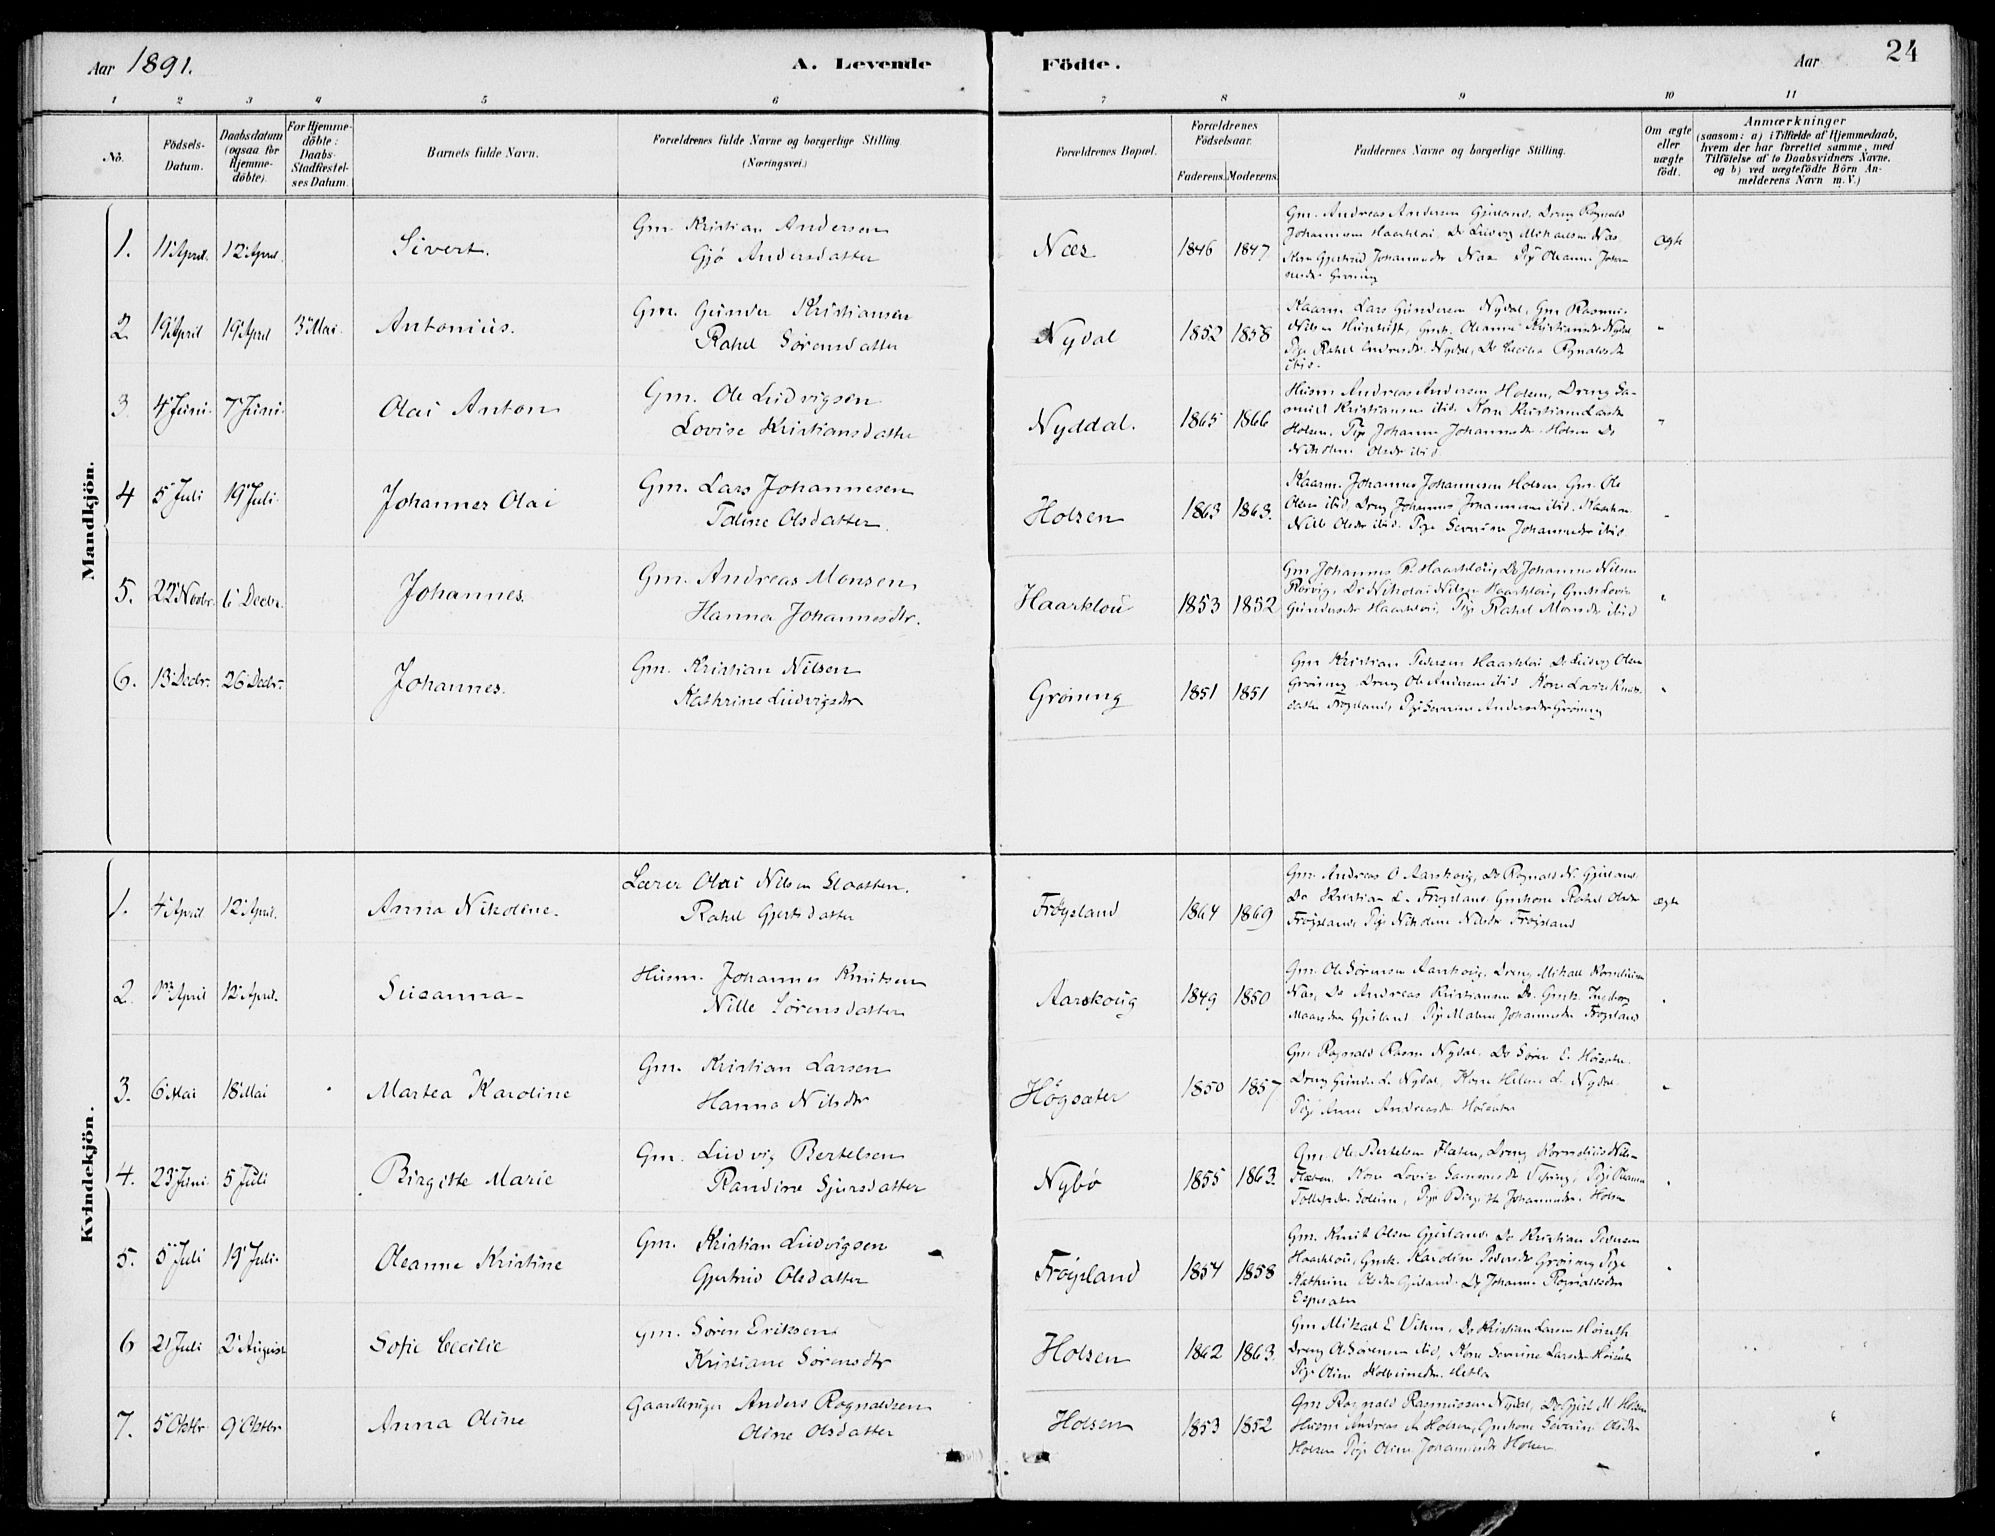 Aar 1891.
A. Levende Födte.
Aar
24
1 2 3 4 5 6 7 8 9 10 11
No.
Födsels-
Datum.
Daabsdatum
(ogsaa for
Hjemme-
döbte).
For Hjemme-
döbte:
Daabs-
Stadfæstel-
ses Datum.
Barnets fulde Navn.
Forældrenes fulde Navne og borgerlige Stilling
(Næringsvei.)
Forældrenes Bopæl.
Forældrenes
Födselsaar.
Faderens. Moderens.
Faddernes Navne og borgerlige Stilling.
Om ægte
eller
uægte
födt.
Anmærkninger
(saasom: a) i Tilfælde af Hjemmedaab,
hvem der har forrettet samme, med
Tilföielse af to Daabsvidners Navne,
og b) ved uægtefödte Börn An-
melderens Navn m.V.)
Mandkjön.
1. 11 April. 12 April. Sivert.
Gm. Kristian Andersen
Gjø Andersdatter
Næs 1846 1847
Gm. Andreas Andersen Gjesland, Dreng Rognald
Johannesen Haarklou. Do Ludvig Mikaelsen Næs.
Kone Gjertrud Johannesdtr Næs Pige Oleanne Johan-
nesdtr Grøning
ægte
2 19 April 19 April 3 Mai. Antonius.
Gm. Gunder Kristiansen
Rakel Sørensdatter
Nydal 1852 1858
Kaarm Lars Gundersen Nydal, Gm Rasmus
Nilsen, Gmk. Oleanne Kristiansdr Nydal
Pige Rakel Andersdr. Nydal, Do Cecilie Rognaldsdr
ibid.
"
3. 4 Juni. 7 Juni. Olai Anton
Gm. Ole Ludvigsen
Lovise Kristiansdatter
Nyddal. 1865 1866
Husm Andreas Andersen Holsen, Dreng Sa-
muel Kristiansen ibid. Kone Kristiane Larsdr
Holsen. Pige Johanne Johannesdr. Holsen Do
Nikoline Olsdr ibid.
"
4 5 Juli 19 Juli. Johannes Olai
Gm. Lars Johannesen
Taline Olsdatter.
Holsen 1863 1863.
Kaarm. Johannes Johannesen Holsen. Gm. Ole
Olsen ibid, Dreng Johannes Johannesen ibid.
Nille Olsdr ibid. Pige Severine Johannesdr ibid.
"
5. 22 Novbr. 6 Decbr. Johannes.
Gm. Andreas Monsen
Hanna Johannesdtr.
Haarklou 1853 1852
Gm Johannes P. Haarklou, Do Johannes Nilsen
Do Nikolai Nilsen Haarklou, Gmk Lovise
Gundersdr Haarklou, Pige Rakel Monsdr ibid
"
6. 13 Decbr. 26 Decbr. Johannes.
Gm. Kristian Nilsen
Kathrine Ludvigsdtr
Grøning 1851 1851
Gm Kristian Pedersen Haarklou Do Ludvig Olsen
Grøning, Dreng Ole Andersen ibid Kone Lovise Knuts-
datter Frøysland, Pige Severine Andersdr Grøning
"
Kvindekjön.
1. 4 April 12 April. Anna Nikoline.
Lærer Olai Nilsen Slaatten.
Rakel Gjertsdatter
Frøysland 1864 1869
Gm. Andreas O Aarskoug, Do Rognald N. Gjesland
Do Kristian L. Frøysland Gmkone Rakel Olsdr
Frøysland, Pige Nikoline Nilsdr Frøysland
ægte
2. April 12 April. Suzanna-
Husm. Johannes Knutsen
Nille Sørensdatter
Aarskoug 1849 1850
Gm. Ole Sørensen Aarskoug, Dreng Mikael Korneliusen
Næs, Do Andreas Kristiansen Do. Gmk. Ingeborg
Gjesland Pige Malene Johannesdr Frøysland
"
3. 6 Mai 18 Mai Martea Karoline
Gm. Kristian Larsen
Hanna Nilsdtr
Høgsæter 1850 1857
Gm. Rognald Rasm Nydal. Do Søren E. Høisæter.
Dreng Gunder L. Nydal, Kone Helene L. Nydal.
Pige Anne Andreasdr Høisæter
"
4. 23 Juni 5 Juli Birgitte Marie
Gm. Ludvig Bertelsen
Randine Sjursdatter
Nybø 1855 1863.
Gm. Ole Bertelsen Flaten, Dreng Kornelius Nils-
Kone Lovise, Pige Oleanne
Pige Birgitte Johannesdr. Holsen
"
5. 5 Juli 19 Juli. Oleanne Kristine
Gm. Kristian Ludvigsen
Gjertrud Olsdatter
Frøysland 1854 1858
Gm. Knut Olsen Gjesland, Do Kristian Pedersen
Haarklou, Gmk. Karoline Pedersdr Grøning Pige
Kathrine Olsdr Gjesland. Do Johanne Rognaldsdr
Espesæter
"
6 21 Juli 2 August Sofie Cecilie
Gm. Søren Eriksen
Kristiane Sørensdtr
Holsen 1862 1863.
Gm Mikael E Viken, Do Kristian Larsen
Dreng Ol. Sørensen ibid, Kone Severine Larsdr Høisæter
Pige Oline
7. 5 Oktbr 9 Oktbr Anna Oline
Gaardbruger Anders Rognaldsen
Oline Olsdatter
Holsen 1853 1852
Gm Rognald Rasmussen Nydal, Do M. Holsen
Husm Andreas A Holsen, Gmkone Severine Olsdr
Holsen Pige Oline Johannesdr Holsen
"